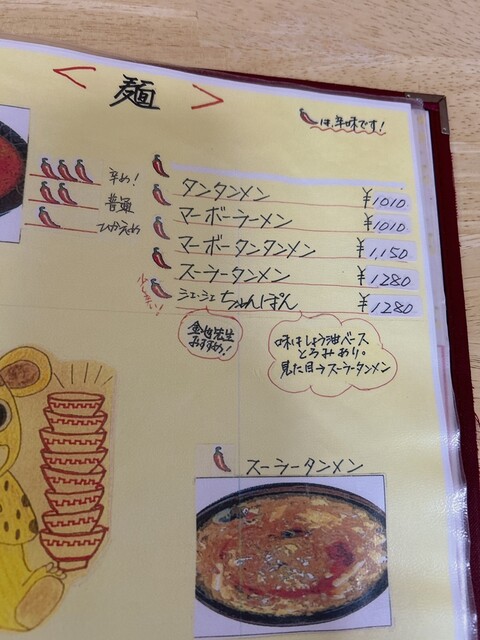 < 麺 >
は、辛味です!
辛め!
普通
ひかえめ
タンタンメン ¥1010
マーボーラーメン ¥1010
マーボータンタンメン ¥1,150
スーラータンメン ¥1280
少し辛い! シェーシェちゃんぽん ¥1280
先生
おすすめ!
味はしょう油ベース
とろみあり。
見た目→スーラータンメン
スーラータンメン